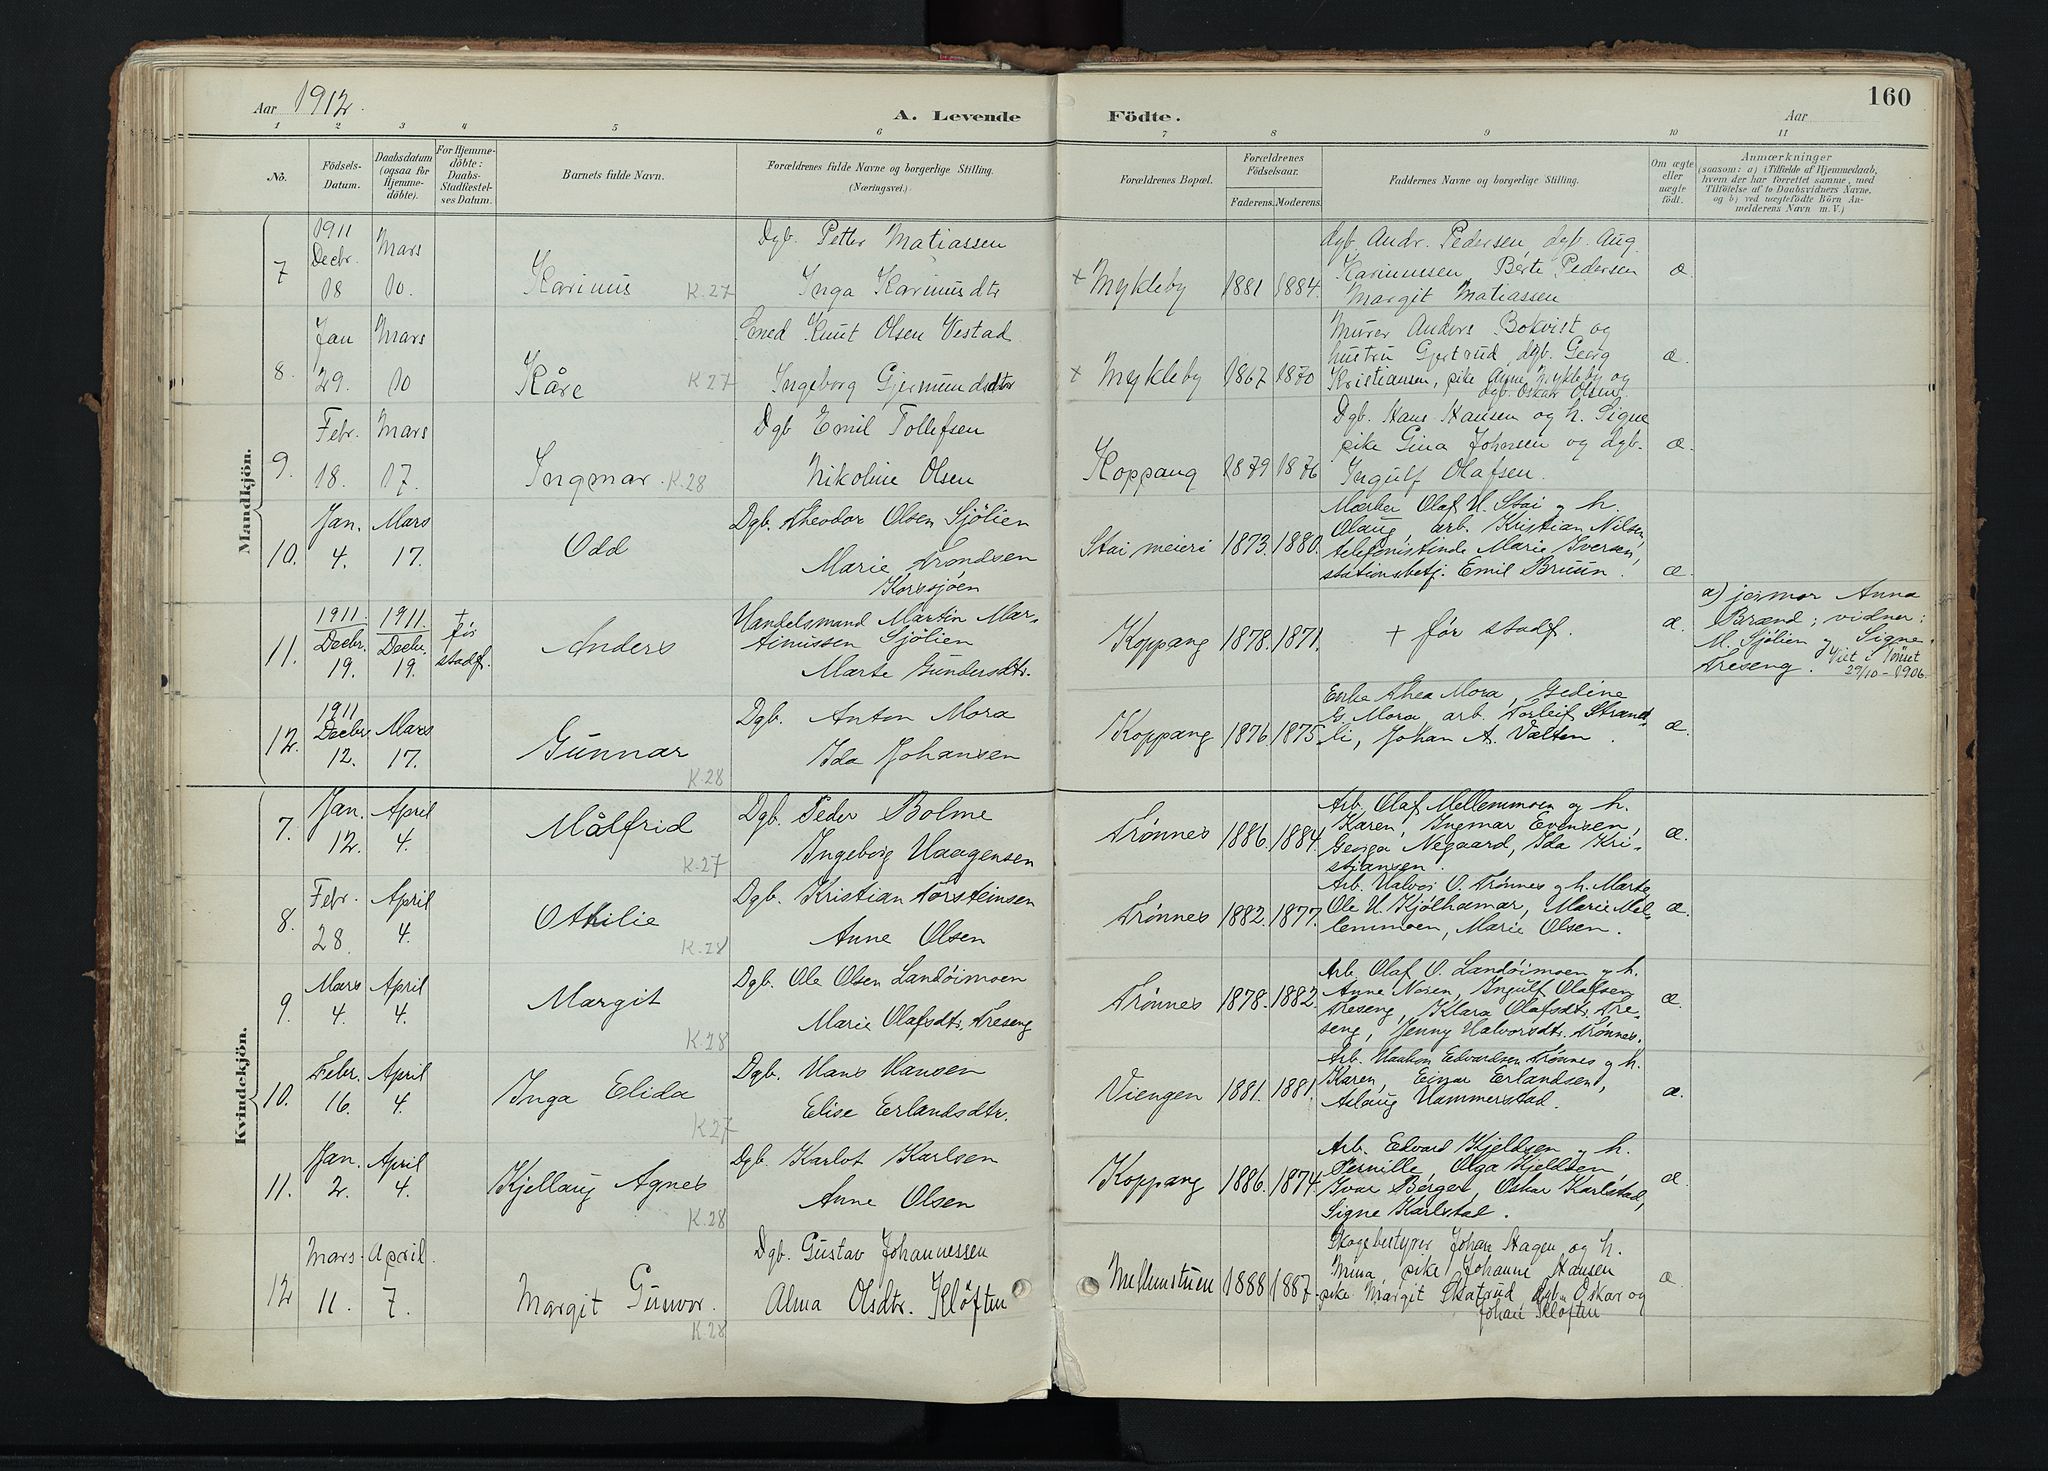 Aar 1912.
A. Levende
Födte.
160
Aar
1 2 3 4 5 6 7 8 9 10 11
No.
Födsels-Datum.
Daabsdatum (ogsaa for Hjemme-döbte).
For Hjemme-döbte: Daabs-Stadfæstel-ses Datum.
Barnets fulde Navn.
Forældrenes fulde Navne og borgerlige Stilling.
(Næringsvei.)
Forældrenes Bopæl.
Forældrenes Födselsaar.
Faderens. Moderens.
Faddernes Navne og borgerlige Stilling.
Om ægte eller uægte födt.
Anmærkninger
(saasom: a) i Tilfælde af Hjemmedaab, hvem der har forrettet samme, med Tilföielse af to Daabsvidners Navne, og b) ved uægtefödte Börn An-melderens Navn m. V.)
Mandkjön.
7
1911 Decbr. 18
Mars 10.
Karinus K.27
Dgb. Petter Matiassen
Inga Karinusdtr
+ Mykleby 1881 1884.
dgb. Andr. Pedersen, dgb. Aug.
Karinussen, Berte Pedersen
Margit Matiassen
æ
8.
Jan 29.
Mars 10
Kåre K.27
Em̄ed Knut Olsen Vestad
Ingeborg Gjermundsdtr
+ Mykleby 1867 1870
Murer Anders Bokvist og
hustru Gjertrud, dgb. Georg
Kristiansen, pike Anne Mykleby og
dgb. Oskar Olsen.
æ.
9.
Febr. 18.
Mars 17.
Ingmar. K.28
Dgb Emil Tollefsen
Nikoline Olsen
Koppang 1879 1876
Dgb. Hans Hansen og h. Signe
pike Gina Johnsen og dgb.
Ingulf Olafsen.
æ.
10.
Jan. 4.
Mars 17.
Odd
Dgb. Theodor Olsen Sjölien
Marie Trondsen
Korssjöen
Stai meieri 1873. 1880.
Mærker Olaf H. Stai og h.
Olaug, arb. Kristian Nilsen,
telefonistinde Marie Iversen,
stationsbetj. Emil Bruun.
æ.
11.
1911. Decbr. 19.
1911. Decbr. 19.
+ før stadf.
Anders
Handelsmand Martin Mar-
tinussen Sjölien
Marte Gundersdtr.
Koppang 1878. 1871.
+ før stadf.
æ.
a) jormor Anna
Brænd; vidner:
M. Sjölien og Signe
Treseng. Viet i Tönset
29/10 - 1906.
12.
1911 Decbr. 12.
Mars 17.
Gunnar K.28
Dgb. Anton Mora
Ida Johansen
Koppang 1876 1875
Enke Thea Mora, Gedine
G. Mora, arb. Torleif Strand-
li, Johan A. Vælten.
æ.
Kvindekjön.
7.
Jan. 12.
April 4.
Målfrid K.27
Dgb. Peder Bolme
Ingeborg Haagensen
Trønnes 1886. 1884.
Arb. Olaf Mellemmoen og h.
Karen, Ingmar Evensen,
Georga Negaard, Ida Kri-
stiansen.
æ.
8.
Febr. 28.
April 4.
Othilie K.28
Dgb. Kristian Torsteinsen
Anne Olsen
Trønnes 1882. 1877.
Arb. Halvor O. Trønnes og h. Marte
Ole H. Kjölhamar, Marie Mel-
lemmoen, Marie Olsen.
æ.
9.
Mars 4.
April 4.
Margit K.28
Dgb. Ole Olsen Landöimoen
Marie Olafsdtr. Treseng
Trønnes 1878. 1882.
Arb. Olaf O. Landöimoen og h.
Anne Noren, Ingulf Olafsen
Treseng, Klara Olafsdtr. Tre-
seng, Jenny Halvorsdtr. Trønnes.
æ.
10.
Febr. 16.
April 4.
Inga Elida K.27
Dgb. Hans Hansen
Elise Erlandsdtr.
Viengen 1881. 1881.
Arb. Haakon Edvardsen Trønnes og h.
Karen, Einar Erlandsen,
Aslaug Hammerstad.
æ.
11.
Jan. 2.
April 4.
Kjellaug Agnes K.28
Dgb. Karlot Karlsen
Anne Olsen
Koppang 1886. 1874.
Arb. Edvard Kjeldsen og h.
Pernille, Olga Kjeldsen,
Ivar Berger, Oskar Karlstad,
Signe Karlstad.
æ.
12
Mars. 11.
April. 7.
Margit Gunvor. K.28
Dgb. Gustav Johannessen
Alma Olsdtr. Kløften
Mellemstuen 1888 1887.
Skogbestyrer Johan Hagen og h.
Mina, pike Johanne Hansen
pike Margit Skatrud dgb. Oskar og
Johan Kløften
æ.